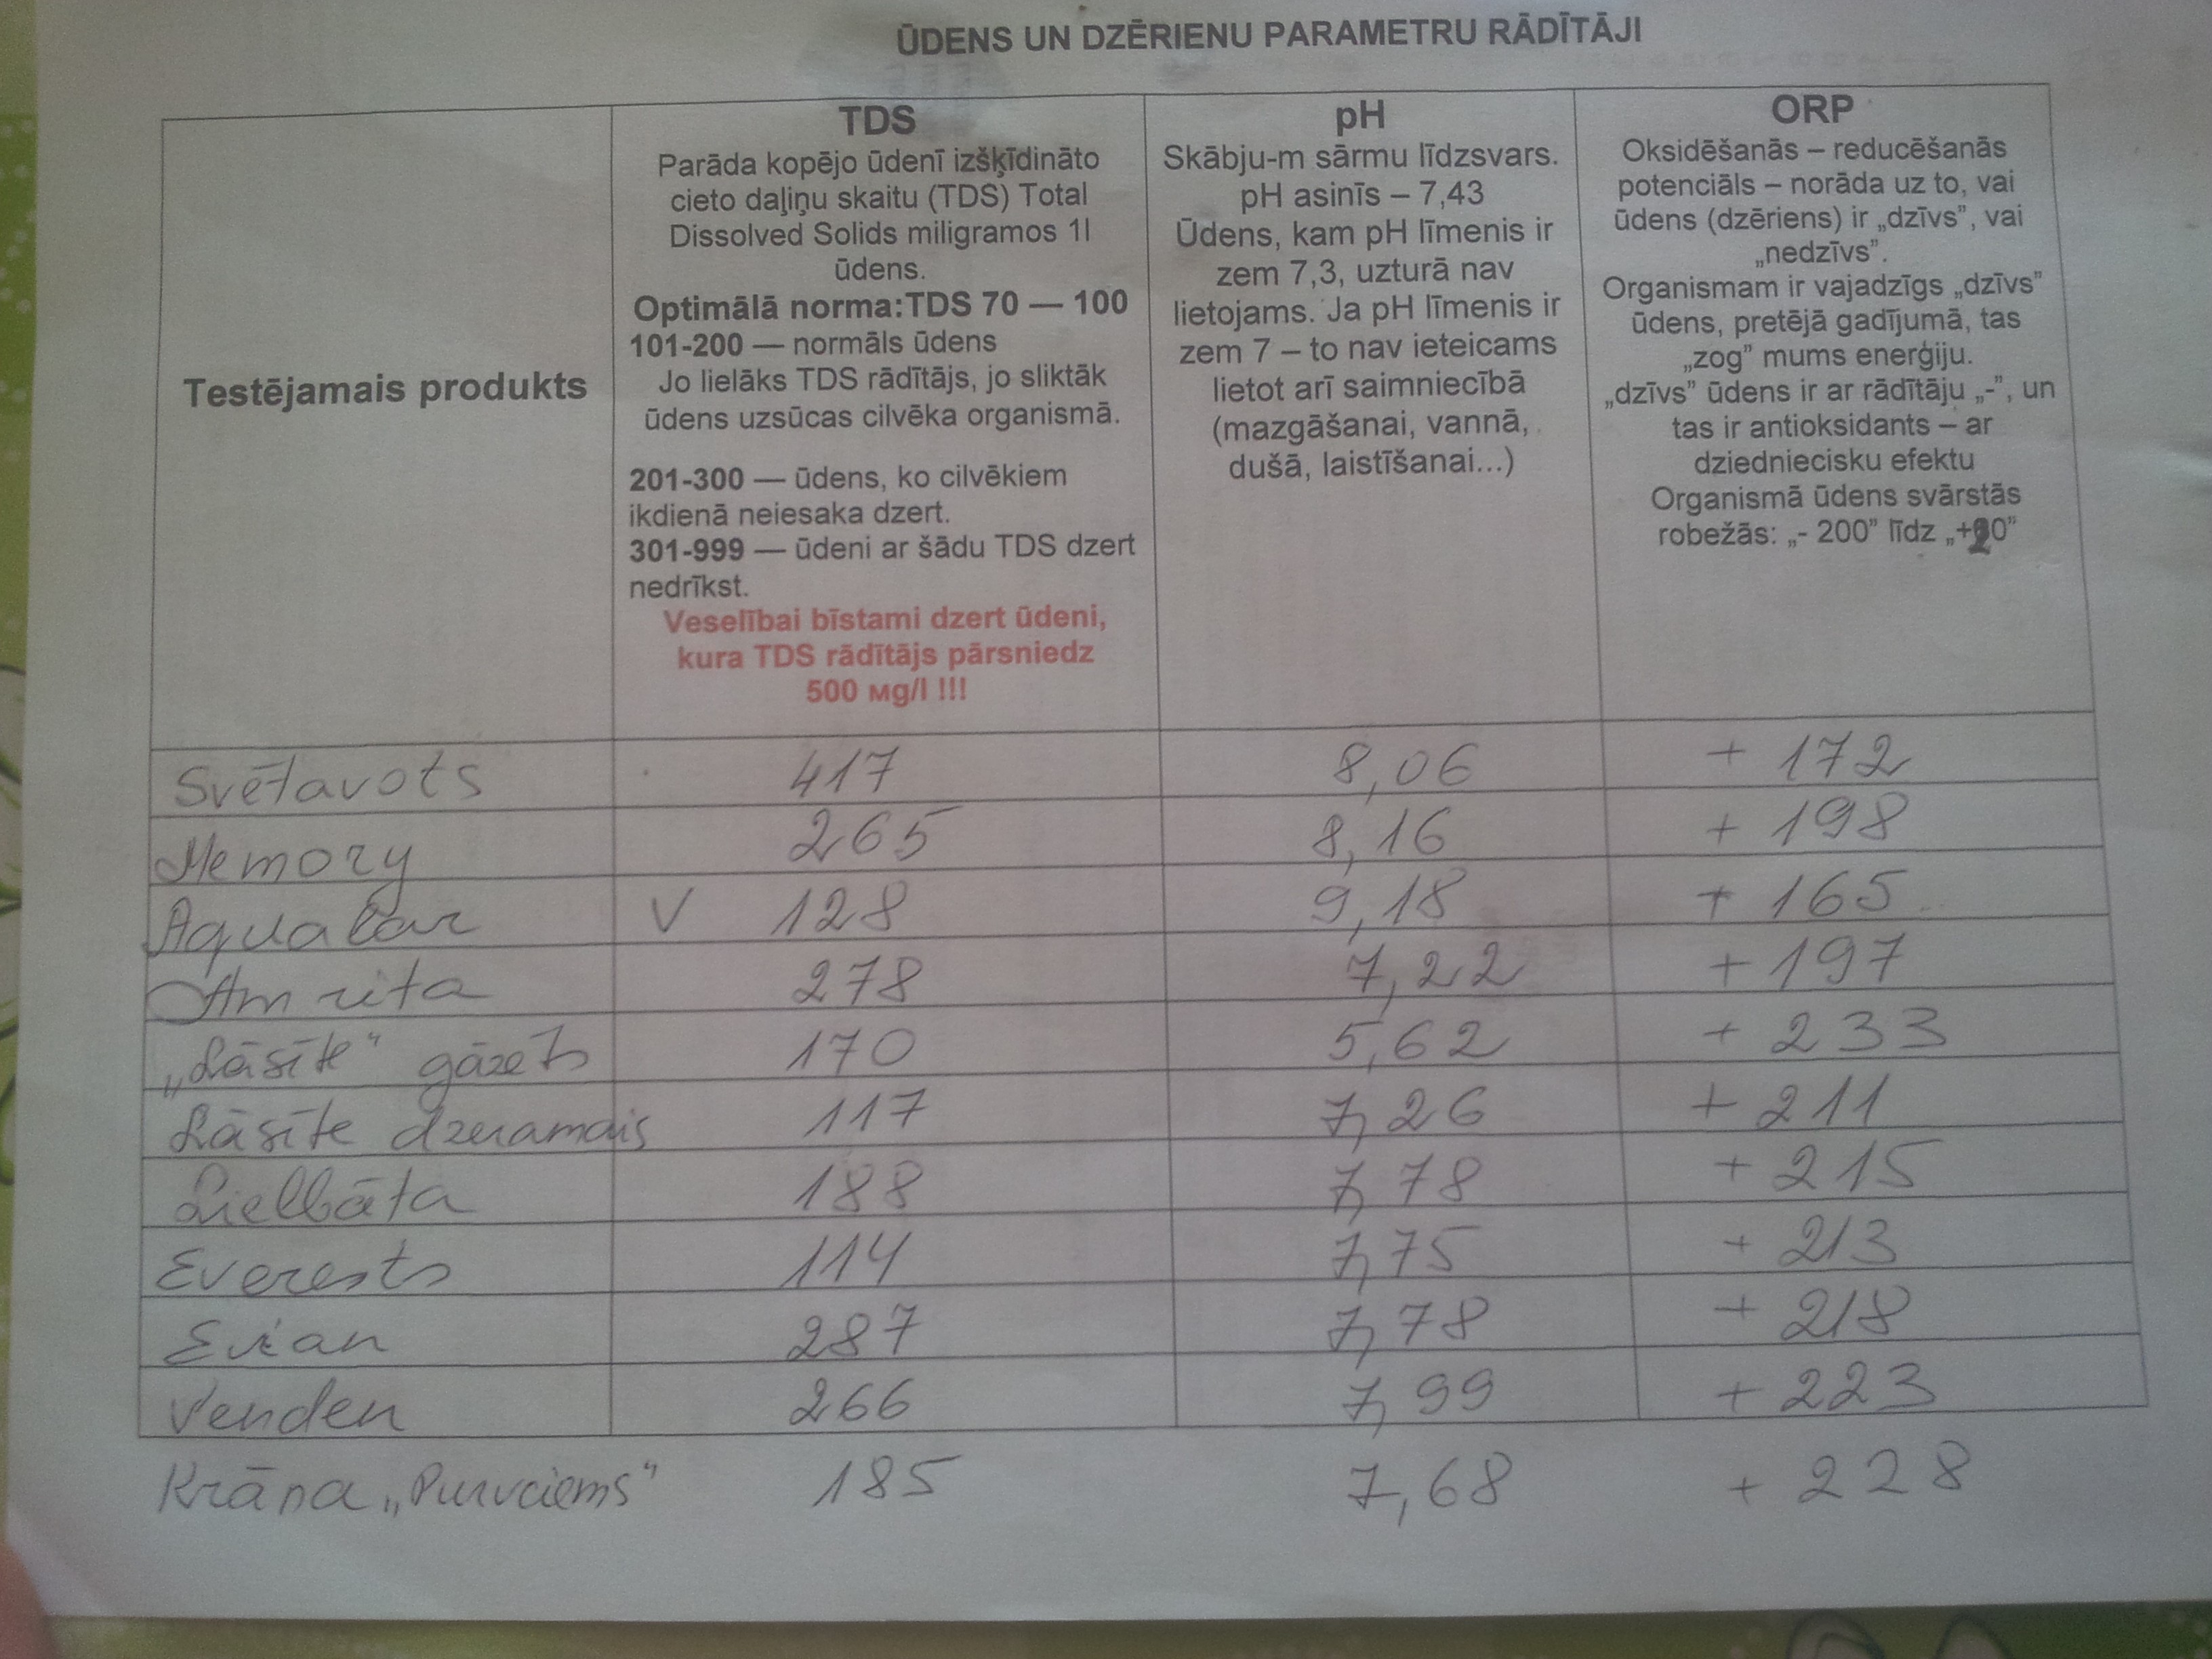 ŪDENS UN DZĒRIENU PARAMETRU RĀDĪTĀJI
Testējamais produkts
TDS
Parāda kopējo ūdenī izšķīdināto
cieto daļiņu skaitu (TDS) Total
Dissolved Solids miligramos 1l
ūdens.
Optimālā norma:TDS 70 — 100
101-200 — normāls ūdens
Jo lielāks TDS rādītājs, jo sliktāk
ūdens uzsūcas cilvēka organismā.
201-300 — ūdens, ko cilvēkiem
ikdienā neiesaka dzert.
301-999 — ūdeni ar šādu TDS dzert
nedrīkst.
Veselībai bīstami dzert ūdeni,
kura TDS rādītājs pārsniedz
500 мg/l !!!
pH
Skābju-m sārmu līdzsvars.
pH asinīs – 7,43
Ūdens, kam pH līmenis ir
zem 7,3, uzturā nav
lietojams. Ja pH līmenis ir
zem 7 – to nav ieteicams
lietot arī saimniecībā
(mazgāšanai, vannā,
dušā, laistīšanai...)
ORP
Oksidēšanās – reducēšanās
potenciāls – norāda uz to, vai
ūdens (dzēriens) ir „dzīvs”, vai
„nedzīvs”.
Organismam ir vajadzīgs „dzīvs”
ūdens, pretējā gadījumā, tas
„zog” mums enerģiju.
„dzīvs” ūdens ir ar rādītāju „-”, un
tas ir antioksidants – ar
dziedniecisku efektu
Organismā ūdens svārstās
robežās: „- 200” līdz
Svētavots 417 8,06 + 172
Memory 265 8,16 + 198
Aqualar V 128 9,18 + 165
Amrita 278 7,22 + 197
„Lāsīte" gāzēts 170 5,62 + 233
Lāsīte dzeramais 117 7,26 + 211
Lielbāta 188 7,78 + 215
Everests 114 7,75 + 213
Evian 287 7,78 + 218
Venden 266 7,99 + 223
Krāna „Purvciems" 185 7,68 + 228